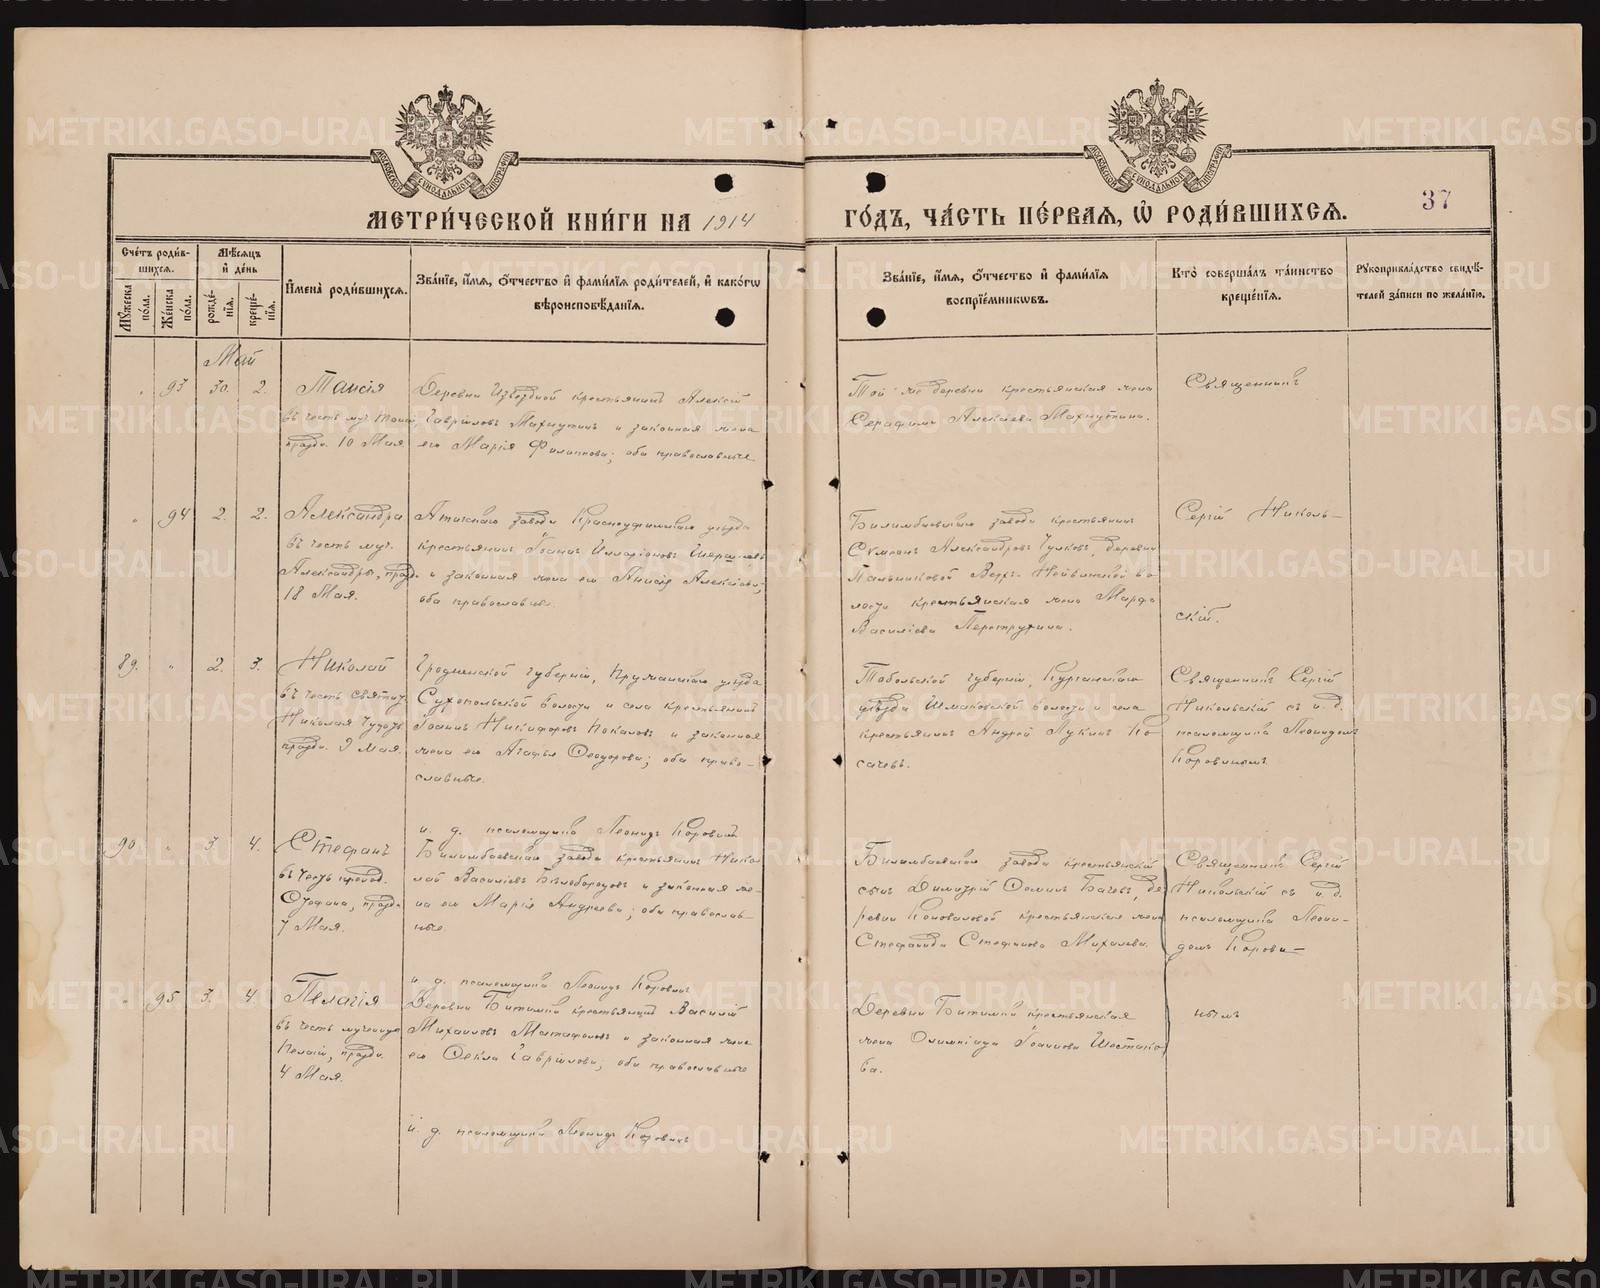 МЕТРИЧЕСКОЙ КНИГИ НА 1914
ГОДЪ, ЧАСТЬ ПЕРВАЯ, Ѡ РОДИВШИХСЯ.
37
Счетъ родив-
шихся.
Мѣсяцъ
и день
Мужеска
пола.
Женска
пола.
рожде-
нія.
креще-
нія.
Имена родившихся.
Званіе, имя, отчество и фамилія родителей, и какогѡ
вѣроисповѣданія.
Званіе, имя, отчество и фамилія
воспріемниковъ.
Кто совершалъ таинство
крещенія.
Рукоприкладство свидѣ-
телей записи по желанію.
Май
93 30. 2.
Таисія
въ честь муч.
празд. 10 Мая
Деревни Извѣздной крестьянинъ Алексій
Гавріиловъ Махнуткинъ и законная жена
его Марія Филиппова; оба православные
Той же деревни крестьянская жена
Серафима Алексѣева Махнуткина.
Священникъ
94 2. 2.
Александра
въ честь муч.
Александры, празд.
18 Мая.
Атигскаго завода Красноуфимскаго уѣзда
крестьянинъ Іоаннъ Илларіоновъ
и законная жена его Алексіева;
оба православные.
Билимбаевскаго завода крестьянинъ
Симеонъ Александровъ Чулковъ, деревни
Пальниковой Верхъ-Нейвинской во-
лости крестьянская жена Марфа
Василіева Перетрухина.
Сергій Николь-
скій.
89. " 2. 3.
Николай
въ честь святит.
Николая Чудотв.
празд. 9 Мая.
Гродненской губерніи, Пружанскаго уѣзда
Сухопольской волости и села крестьянинъ
Іоаннъ Никифоровъ Покаловъ и законная
жена его Агафья Ѳеодорова; оба право-
славные.
и. д. псаломщика Леонидъ Коровинъ
Тобольской губерніи, Курганскаго
уѣзда Шмаковской волости и села
крестьянинъ Андрей Лукинъ Ко-
сачевъ.
Священникъ Сергій
Никольскій съ и. д.
псаломщика Леонидомъ
Коровинымъ.
90. " 3 4.
Стефанъ
въ честь препод.
Стефана, празд.
7 Мая.
Билимбаевскаго завода крестьянинъ Нико-
лай Василіевъ Бѣлобородовъ и законная же-
на его Марія Андреева; оба православ-
ные.
и. д. псаломщика Леонидъ Коровинъ
Билимбаевскаго завода крестьянскій
сынъ Димитрій Ѳоминъ Бачевъ, де-
ревни Коноваловой крестьянская жена
Стефанида Стефанова Михалева.
Священникъ Сергій
Никольскій съ и. д.
псаломщика Леони-
домъ Корови-
95 3. 4.
Пелагія
въ честь мученицы
Пелагіи, празд.
4 Мая.
Деревни Битимки крестьянинъ Василій
Михаиловъ Матафоновъ и законная жена
его Ѳекла Гавріилова; оба православные
и. д. псаломщика Леонидъ Коровинъ
Деревни Битимки крестьянская
жена Олимпіада Іоаннова Шестако-
ва.
нымъ